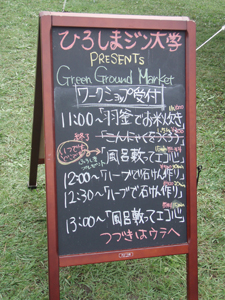 ひろしまジン大学
PRESENTS
Green Ground Market
ワークショップ受付
11:00〜「羽釜でお米炊き」
終了
「こんにゃくをつくろう」
「風呂敷ってエコバ」
12:00〜「ハーブで石けん作り」
12:30〜「ハーブで石けん作り」
13:00〜「風呂敷ってエコバ」
つづきはウラへ